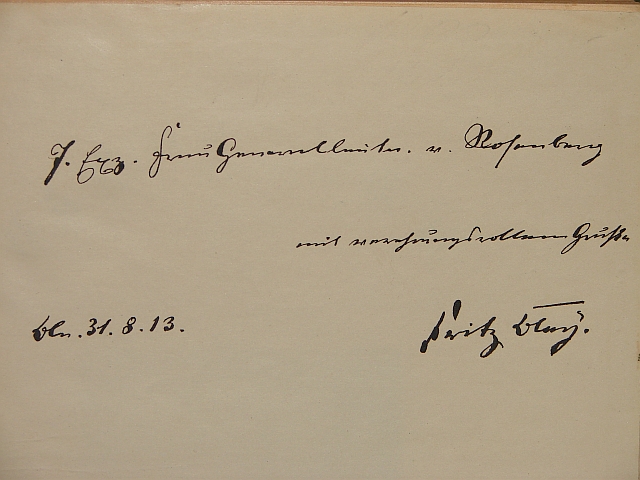 J. Exz. Frau Generalleutn. v. Rosenberg
mit verehrungsvollem Gruße
Bln. 31. 8. 13.
Fritz Bley.